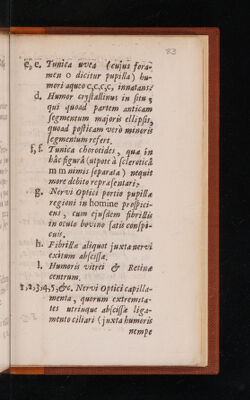 83
e, e. Tunica uvea (cujus fora-
men o dicitur pupilla) hu-
mori aqueo c,c,c,c, innatans.
d. Humor crystallinus in situ,
qui quoad partem anticam
segmentum majoris ellipsis,
quoad posticam verò minoris
segmentum refert.
f, f. Tunica choroides, qua in
hâc figurâ (utpote à scleroticâ
m m nimis separata) nequit
more debito repræsentari.
g. Nervi Optici portio pupillæ
regioni in homine prospici-
ens, cum ejusdem fibrillis
in oculo bovino satis conspi-
cuis.
h. Fibrillæ aliquot juxta nervi
exitum abscissæ.
l. Humoris vitrei & Retinæ
centrum.
1,2,3,4,5,&c. Nervi Optici capilla-
menta, quorum extremita-
tes utrinque abscissæ liga-
mento ciliari (juxta humoris
nempe